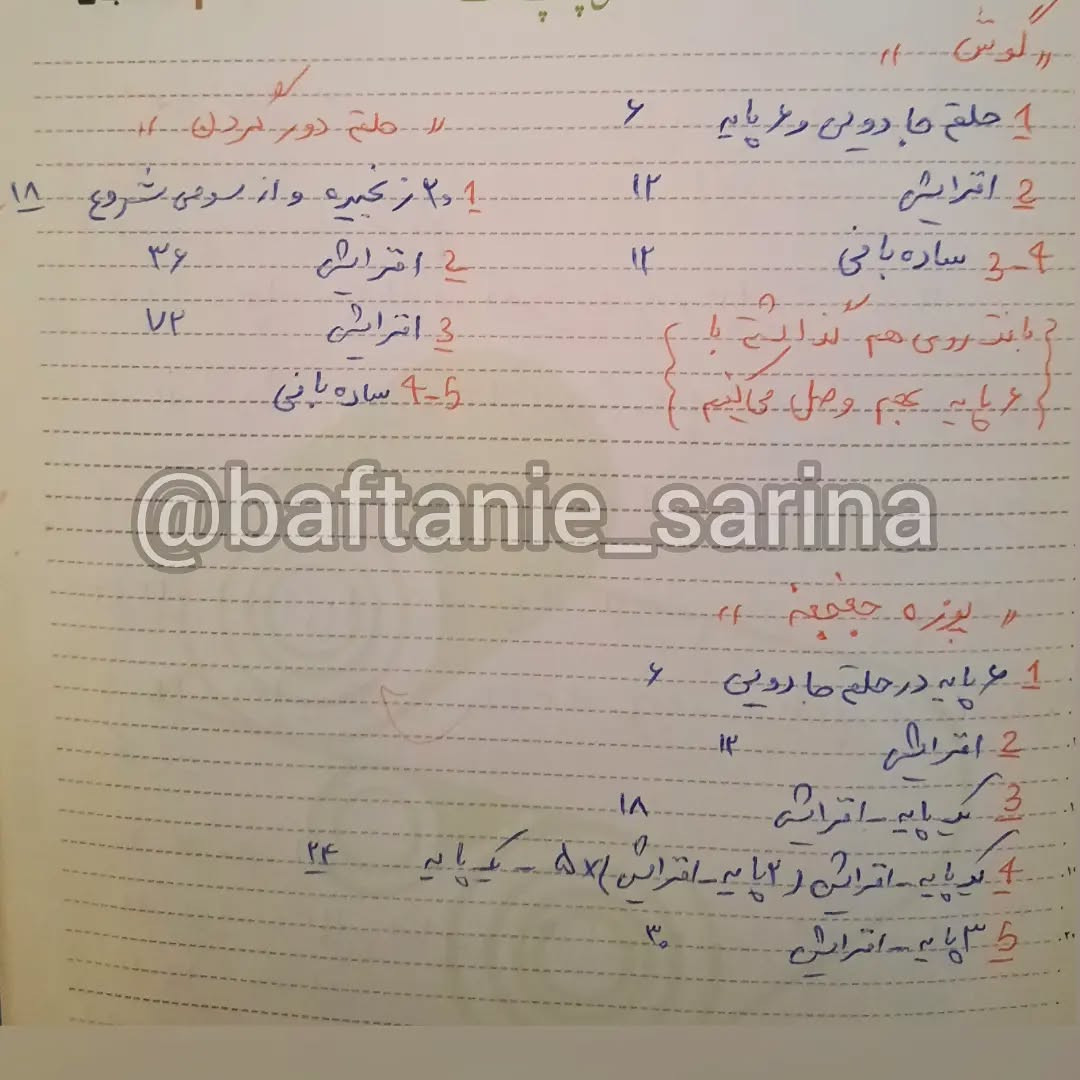 « گوش »
1 حلقه جادویی و ۶ پایه ۶
2 افزایش ۱۲
3-4 ساده بافی ۱۲
{ بافت روی هم گذاشته با }
{ ۶ پایه بهم وصل میکنیم }
« حلقه دور گردن »
1 ۲۰ زنجیره و از سومی شروع ۱۸
2 افزایش ۳۶
3 افزایش ۷۲
4-5 ساده بافی
@baftanie_sarina
« پوزه جغجغه »
1 ۶ پایه در حلقه جادویی ۶
2 افزایش ۱۲
3 یک پایه - افزایش ۱۸
4 یک پایه - افزایش (۲ پایه - افزایش)×۵ - یک پایه ۲۴
5 ۳ پایه - افزایش ۳۰